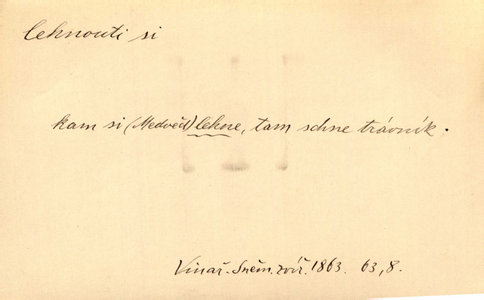 lehnouti si
kam si (Medvěd) lehne, tam schne trávník.
Vinař. Sněm. zvíř. 1863. 63, 8.